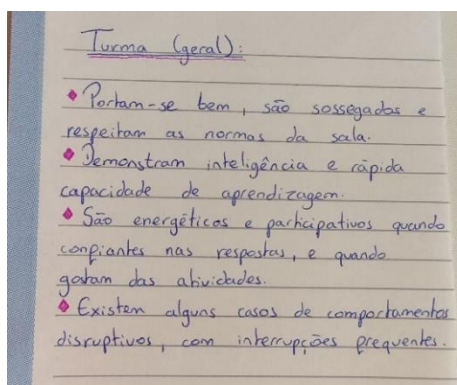 Turma (geral):
• Portam-se bem, são sossegados e
respeitam as normas da sala.
• Demonstram inteligência e rápida
capacidade de aprendizagem.
• São energéticos e participativos quando
confiantes nas respostas, e quando
gostam das atividades.
• Existem alguns casos de comportamentos
disruptivos, com interrupções frequentes.